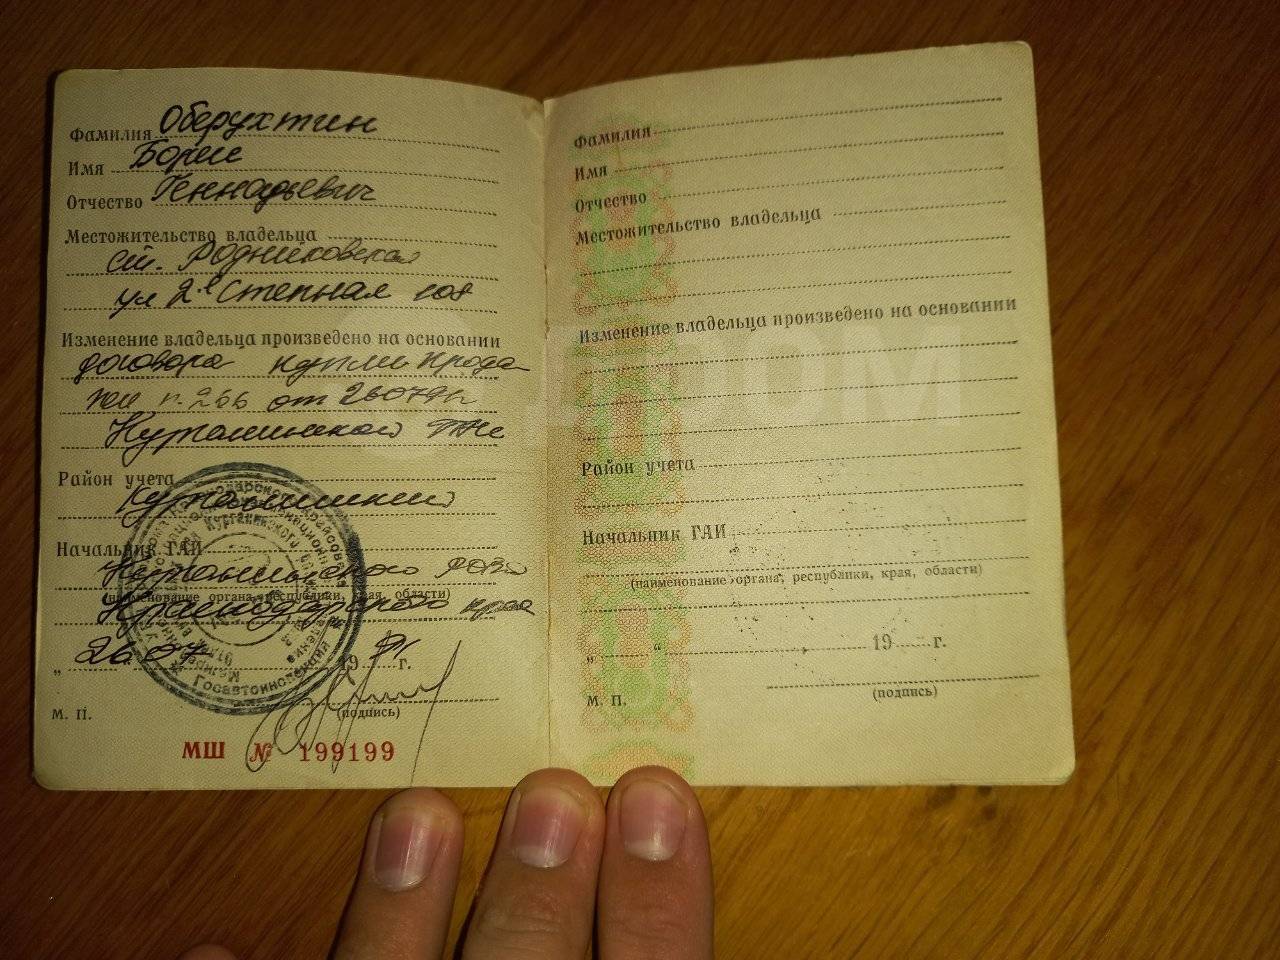 Фамилия Оберухтин
Имя Борис
Отчество Геннадьевич
Местожительство владельца
ст. Родниковская
ул 2я Степная 108
Изменение владельца произведено на основании
договора купли прода
жи п. 266 от 260791г
Курганинской
Район учета
Курганинский
Начальник ГАИ
Курганинского РОВД
(наименование органа, республики, края, области)
Краснодарского края
„ 26 “ 07 19 91 г.
(подпись)
М. П.
МШ № 199199
Госавтоинспекция
Фамилия
Имя
Отчество
Местожительство владельца
Изменение владельца произведено на основании
Район учета
Начальник ГАИ
(наименование органа, республики, края, области)
„ “ 19 г.
(подпись)
М. П.